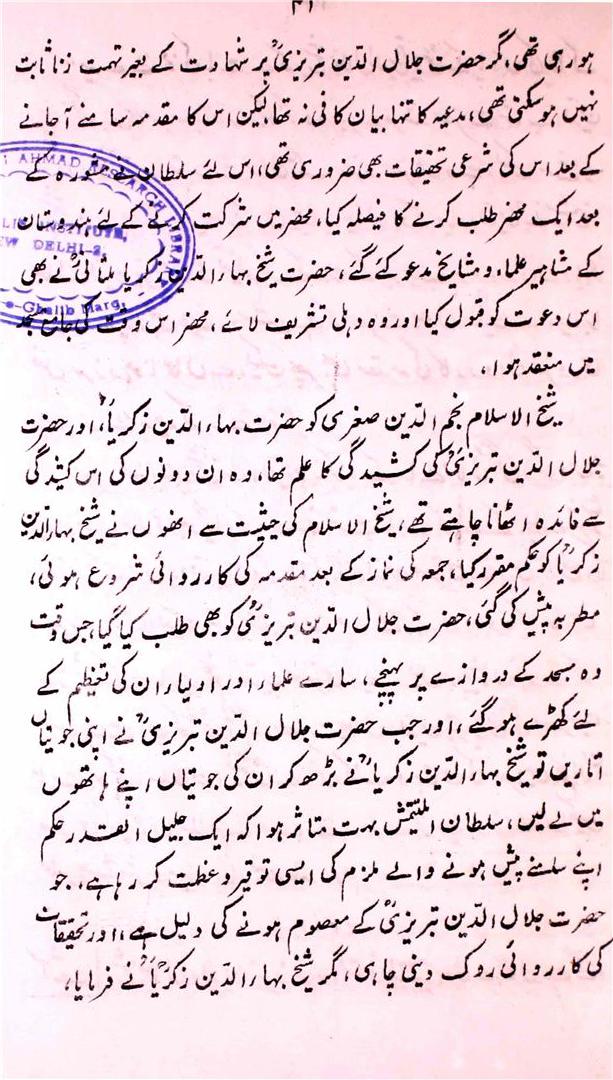 ۴۱
ہو رہی تھی، مگر حضرت جلال الدین تبریزیؒ پر شہادت کے بغیر تہمت زنا ثابت
نہیں ہوسکتی تھی، مدعیہ کا تنہا بیان کافی نہ تھا، لیکن اس کا مقدمہ سامنے آجانے
کے بعد اس کی شرعی تحقیقات بھی ضروری تھی، اس لئے سلطان نے مشورہ کے
بعد ایک محضر طلب کرنے کا فیصلہ کیا، محضر میں شرکت کرنے کے لئے ہندوستان
کے مشاہیر علماء و مشایخ مدعو کئے گئے، حضرت شیخ بہاء الدین زکریا ملتانیؒ نے بھی
اس دعوت کو قبول کیا اور وہ دہلی تشریف لائے، محضر اس وقت کی جامع مسجد
میں منعقد ہوا،
شیخ الاسلام نجم الدین صغریٰ کو حضرت بہاء الدین زکریاؒ، اور حضرت
جلال الدین تبریزیؒ کی کشیدگی کا علم تھا، وہ ان دونوں کی اس کشیدگی
سے فائدہ اٹھانا چاہتے تھے، شیخ الاسلام کی حیثیت سے انھوں نے شیخ بہاء الدین
زکریاؒ کو حکم مقرر کیا، جمعہ کی نماز کے بعد مقدمہ کی کارروائی شروع ہوئی،
مطربہ پیش کی گئی، حضرت جلال الدین تبریزیؒ کو بھی طلب کیا گیا، جس وقت
وہ مسجد کے دروازے پر پہنچے، سارے علماء اور اولیاء ان کی تعظیم کے
لئے کھڑے ہوگئے، اور جب حضرت جلال الدین تبریزیؒ نے اپنی جوتیاں
اتاریں تو شیخ بہاء الدین زکریاؒ نے بڑھ کر ان کی جوتیاں اپنے ہاتھوں
میں لے لیں، سلطان التتمش بہت متاثر ہوا کہ ایک جلیل القدر حکم
اپنے سامنے پیش ہونے والے ملزم کی ایسی توقیر و عظمت کر رہا ہے، جو
حضرت جلال الدین تبریزیؒ کے معصوم ہونے کی دلیل ہے، اور تحقیقات
کی کارروائی روک دینی چاہی، مگر شیخ بہاء الدین زکریاؒ نے فرمایا،
AHMAD RESEARCH LIBRARY
INSTITUTE,
NEW DELHI-2
e-Ghalib Marg,